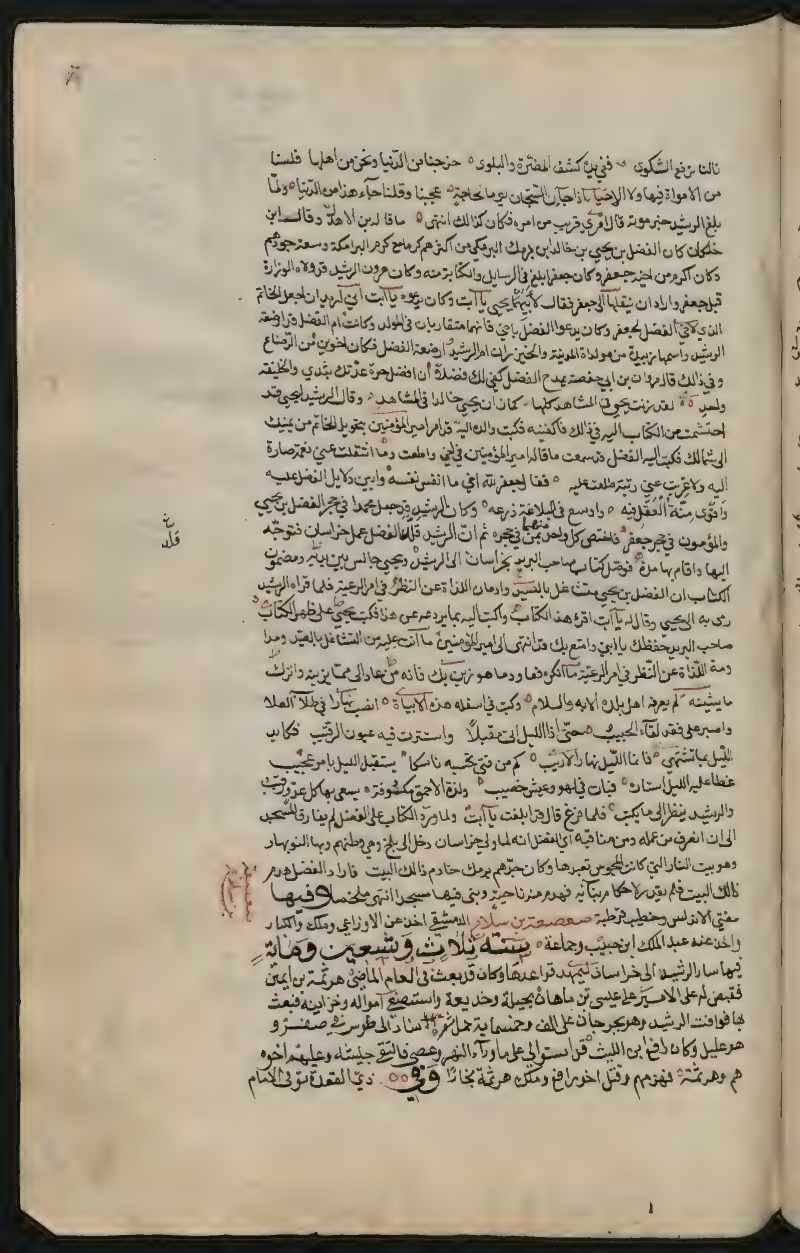 نالنا نرفع الشكوى ففي يده كشف المضرة والبلوى ٥ خرجنا من الدنيا ونحن من اهلها فلسنا
من الاموات فيها ولا الاحيا اذا جاء السجان يوما لحاجة ٥ عجبنا وقلنا جاء هذا من الدنيا ٥ ولما
بلغ الرشيد خبر موته قال امري قريب من امره فكان كذالك انتهى ٥ ما قاله ابن الاهدل وقال ابن
خلكان كان الفضل بن يحيى بن خالد ابن برمك البرمكي من اكثرهم كرما مع كرم البرامكة وسعة جودهم
وكان اكرم من اخيه جعفر وكان جعفر ابلغ في الرسايل والكتابة منه وكان هرون الرشيد قد ولاه الوزارة
قبل جعفر واراد ان ينقلها الى جعفر فقال لابيهما يحيى يا ابت وكان يدعوه يا ابت اني اريد ان اجعل الخاتم
الذي لاخي الفضل لجعفر وكان يدعوا الفضل باخي فانهما متقاربان في المولد وكانت ام الفضل قد ارضعت
الرشيد واسمها زبيدة من مولدات المدينة والخيزران ام الرشيد ارضعت الفضل فكان اخوين من الرضاع
وفي ذالك قال مروان بن ابي حفصة يمدح الفضل كفى لك فضلا ان افضل حرة غذتك بثدي والخليفة
واحد ٥٥ لقد زنت يحيى في المشاهد كلها كما زان يحيى خالدا في المشاهد ٥ وقال الرشيد ليحيى قد
احتشمت من الكتاب اليه في ذالك فاكفنيه فكتب والده اليه قد امر امير المؤمنين بتحويل الخاتم من يمينك
الى شمالك فكتب اليه الفضل قد سمعت ما قاله امير المؤمنين في اخي واطعت وما انتقلت عني نعمة صارت
اليه ولا غربت عني رتبة طلعت عليه ٥ فقال جعفر لله اخي ما انفس نفسه وابين دلايل الفضل عليه
واقوى منة العقل فيه ٥ واوسع في البلاغة ذرعه ٥ وكان الرشيد قد جعل محمدا في حجر الفضل بن يحيى
والمؤمون في حجر جعفر فاختص كل واحد منهما بمن في حجره ثم ان الرشيد قلد الفضل عمل خراسان فتوجه
اليها واقام بها مدة فوصل كتاب صاحب البريد بخراسان الى الرشيد ويحيى جالس بين يديه ومضمون
الكتاب ان الفضل بن يحيى متشاغل بالصيد وادمان اللذاة عن النظر في امر الرعية فلما قراه الرشيد
رمى به الى يحيى وقال له يا ابت اقرء هذا الكتاب واكتب اليه بما يردعه عن هذا فكتب يحيى على ظهر الكتاب
صاحب البريد حفظك يا بني وامتع بك قد انتهى الى امير المؤمنين ما انت عليه من التشاغل بالصيد ومدا
ومة اللذاة عن النظر في امر الرعية ما انكره فعاود ما هو ازين بك فانه من عاد الى ما يزينه وترك
ما يشينه لم يعرفه اهل بلده الا به والسلام ٥ وكتب في اسفله هذه الابيات ٥ انصب نهارا في طلاب العلا
واصبر على فقد لقاء الحبيب ٥ حتى اذا الليل اتى مقبلا واستترت فيه عيون الرقيب فكابد
الليل بما تشتهي ٥ فانما الليل نهار الاريب ٥ كم من فتى تحسبه ناسكا يستقبل الليل بامر عجيب
غطا عليه الليل استاره ٥ فبات في لهو وعيش خصيب ٥ ولذة الاحمق مكشوفة ٥ يسعى بها كل عدو رقيب
والرشيد ينظر الى ما يكتب فلما فرغ قال قد ابلغت يا ابت ولما ورد الكتاب على الفضل لم يفارق المسجد
الى ان انصرف من عمله ومن مناقبه اي الفضل انه لما ولي خراسان دخل الى بلخ وهي وطنهم وبها النوبهار
وهو بيت النار التي كانت المجوس تعبدها وكان جدهم برمك خادم ذالك البيت فاراد الفضل هدم
ذالك البيت فلم يقدر لاحكام بنيانه فهدم منه ناحية وبنى فيها مسجدا انتهى ملخصا وفيها
مفتي الاندلس وخطيب قرطبة صعصعة بن سلام الدمشقي اخذ عن الاوزاعي ومالك والكبار
واخذ عنه عبد الملك ابن حبيب وجماعة ٥ سنة ثلاث وتسعين ومائة
فيها سار الرشيد الى خراسان ليمهد قواعدها وكان قد بعث في العام الماضي هرثمة بن ايمن
فقبض له على الامير علي عيسى بن ماهان بحيلة وخديعة واستصفى امواله وخزاينه فبعث
بها فوافت الرشيد وهو بجرجان على الف وخمسماية جمل ثم سار الى طوس في صفر و
هو عليل وكان رافع ابن الليث قد استولى على ما وراء النهر وعصى فالتقى جيشه وعليهم اخوه
هم وهرثمة فهزمهم وقتل اخو رافع وملك هرثمة بخارا وفي ٥٥ ذي القعدة توفى الامام
صعصعة
بن سلام
قلد